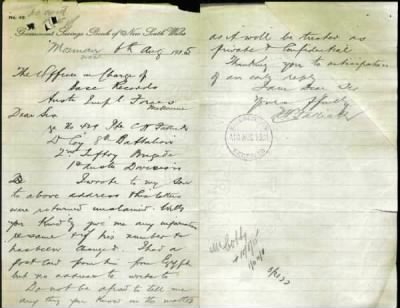 No. 42.
Government Savings Bank of New South Wales
Mosman 6th Aug 1915
The Officer in Charge of
Base Records
Austn Impl Forces
Melbourne
Dear Sir
D Coy 8th Battalion
2nd Inftry Brigade
1st Austn Division
I wrote to my Son
to above address & his letters
were returned unclaimed. Will
you kindly give me any information
you can & if his number
has been changed. I had a
post card from him from Egypt
but no answer to
Do not be afraid to tell me
any thing you know in the matter
as it will be treated as
private & Confidential
Thanking you in anticipation
of an early reply
I am Dear Sir
Yours ffully